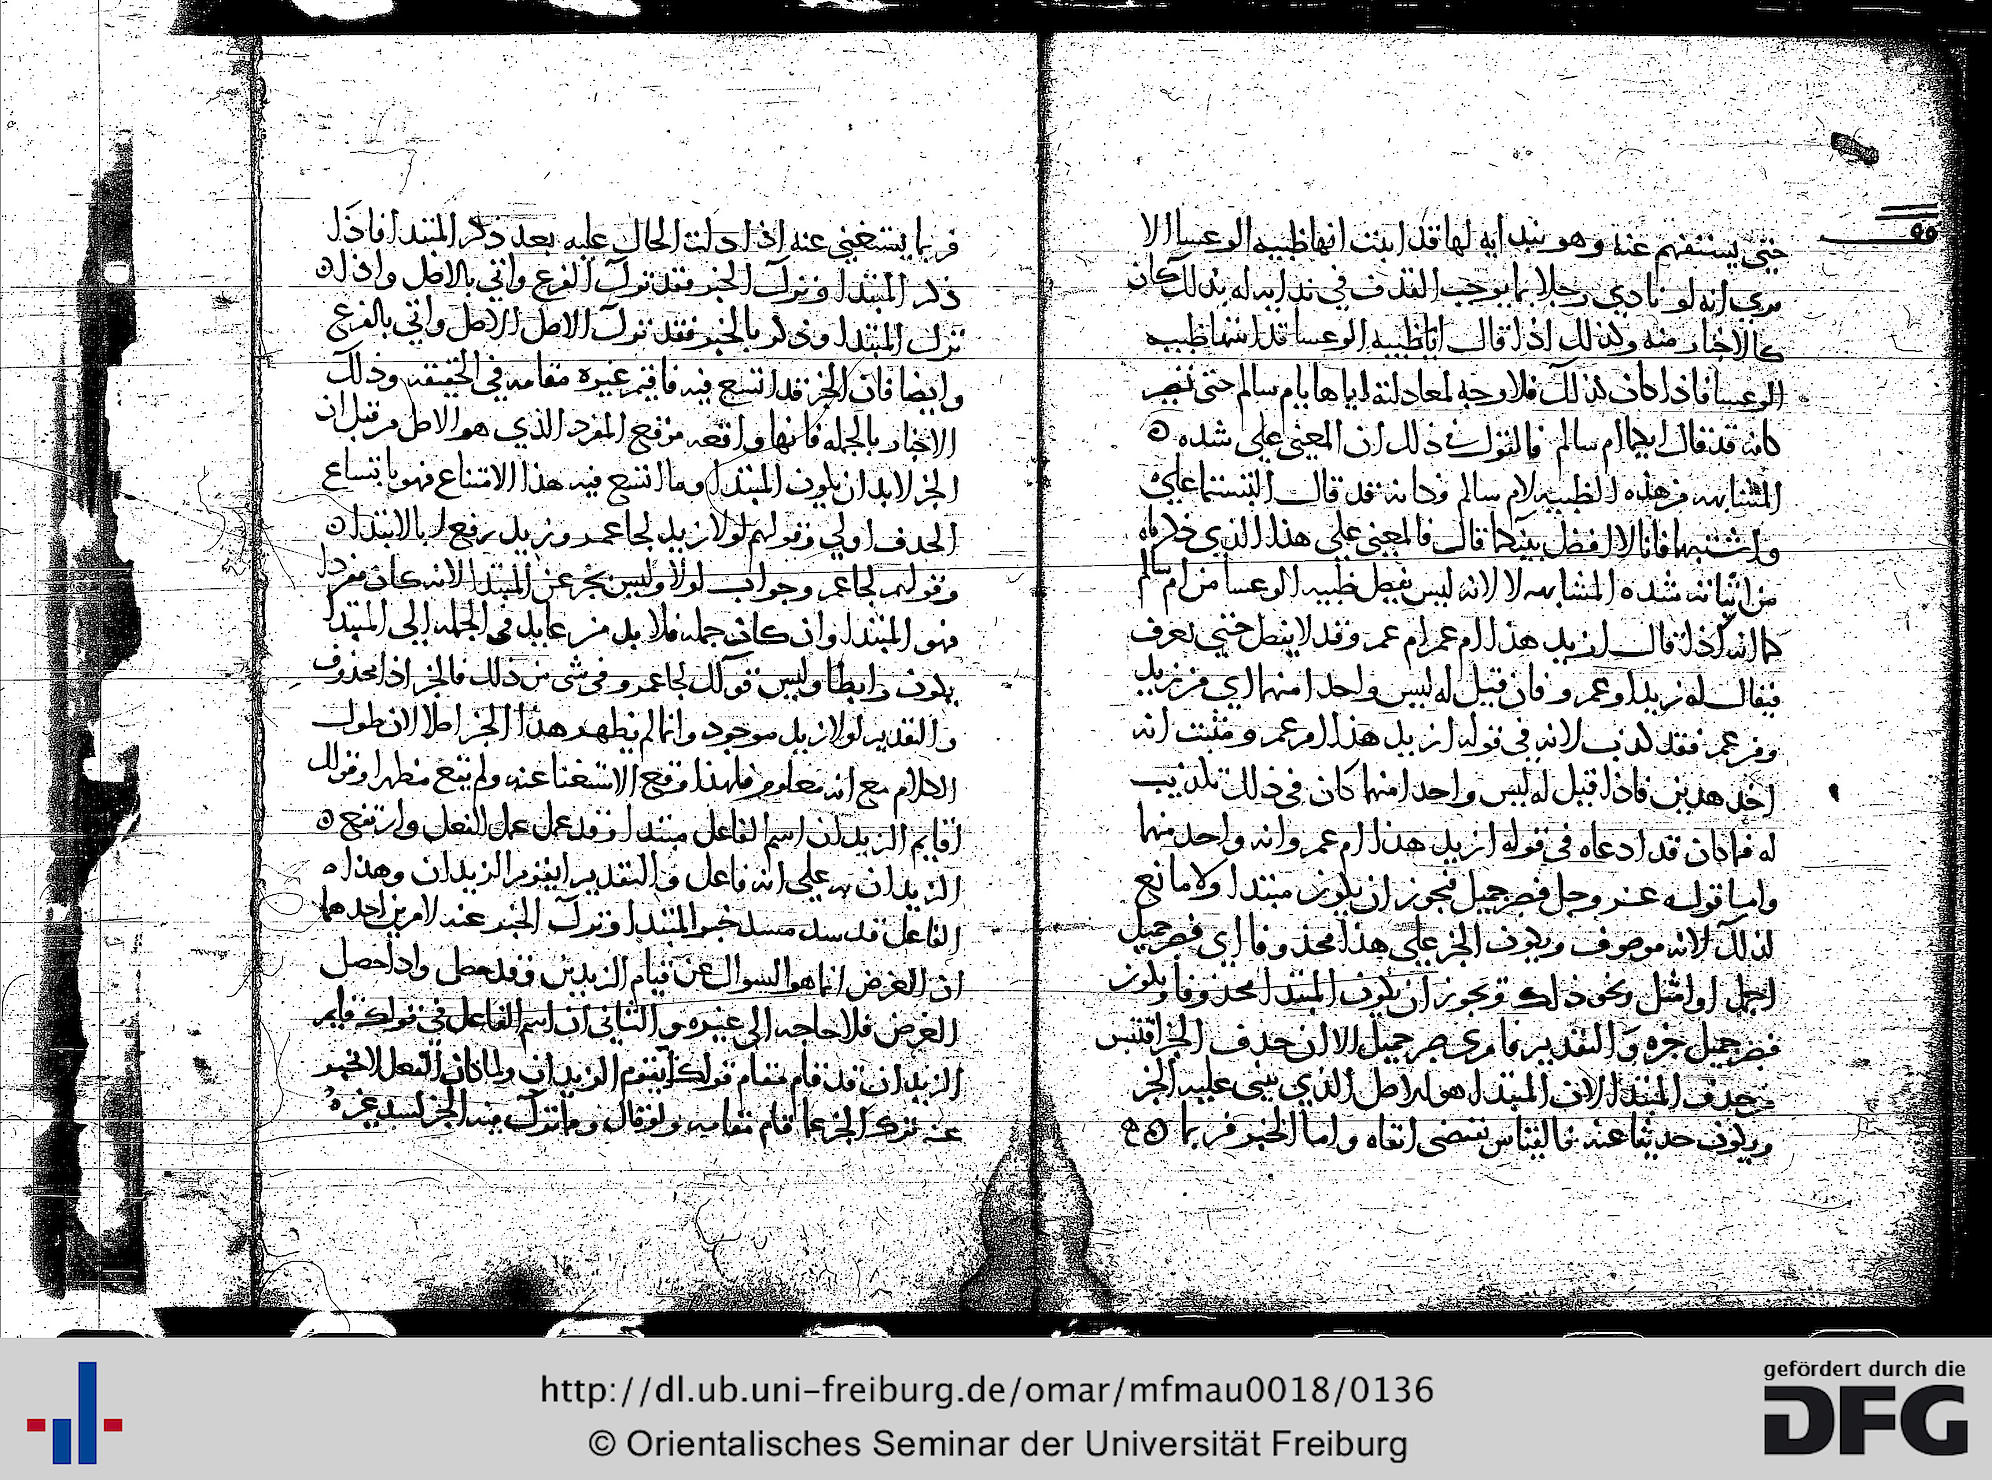 وقف
حتى يستفهم عنه وهو بندايه لها قد اثبت انها ظبيه الوعسا الا
ترى انه لو نادى رجلا بما يوجب القذف في ندايه له بذلك كان
كالاخبار منه وكذلك اذا قال اياظبيه الوعسا قد اثبتها ظبيه
الوعسا فاذا كان كذلك فلا وجه لمعادلته اياها بام سالم حتى تصير
كانه قد قال ايكما ام سالم فالقول في ذلك ان المعنى على شده
المشابهه من هذه الظبيه لام سالم وكانه قد قال التبستما علي
واشتبهتما فانا لا افصل بينكما قال فالمعنى على هذا الذي ذكرناه
من اثباته شده المشابهه لا لانه ليس يفصل ظبيه الوعسا من ام سالم
كما انه اذا قال ازيد هذا ام عمر ام عمر وقد لا يفصل حتى يعرف
فيقال له زيد او عمرو فان قيل له ليس واحدا منهما اي من زيد
ومن عمر فقد كذب لانه في قوله ازيد هذا ام عمر ومثبت انه
احد هذين فاذا قيل له ليس واحدا منهما كان في ذلك تكذيب
له فما كان قد ادعاه في قوله ازيد هذا ام عمر وانه واحد منهما
واما قوله عز وجل فصبر جميل فيجوز ان يكون مبتدا ولا مانع
لذلك لانه موصوف ويكون الخبر على هذا محذوفا اي فصبر جميل
اجمل او امثل ونحو ذلك ويجوز ان يكون المبتدا محذوفا ويكون
فصبر جميل خبره والتقدير فامري صبر جميل الا ان حذف الخبر اقيس
من حذف المبتدا لان المبتدا هو الاصل الذي يبنى عليه الخبر
ويكون حديثا عنه فالقياس يقتضي ابقاه واما الخبر فربما
فربما يستغنى عنه اذا دلت الحال عليه بعد ذكر المبتدا فاذا
ذكر المبتدا وترك الخبر فقد ترك الفرع واتي بالاصل واذا
ترك المبتدا وذكر بالخبر فقد ترك الاصل الاصل واتي بالفرع
وايضا فان الخبر قد اتسع فيه فاقيم غيره مقامه في الحقيقه وذلك
الاخبار بالجمله فانها واقعه موقع المفرد الذي هو الاصل من قبل ان
الخبر لابد ان يكون المبتدا وما اتسع فيه هذا الاتساع فهو باتساع
الحذف اولي وقولهم لولا زيد لجا عمرو زيد رفع بالابتدا
وقولهم لجا عمر وجواب لولا وليس بخبر عن المبتدا لانه كان مفردا
فهو المبتدا وان كان جمله فلا بد من عايد في الجمله الي المبتدا
يكون رابطا وليس قولك لجا عمرو في شي من ذلك فالخبر اذا محذوف
والتقدير لولا زيد موجود وانما لم يظهر هذا الخبر اصلا لان طول
الكلام مع انه معلوم فلهذا وقع الاستغنا عنه ولم يقع مظهرا وقولك
اقايم الزيدان اسم الفاعل مبتدا وقد عمل عمل الفعل وارتفع
الزيدان به علي انه فاعل والتقدير ايقوم الزيدان وهذا
الفاعل قد سد مسد خبر المبتدا وترك الخبر عند لامرين احدهما
ان الغرض انما هو السوال عن قيام الزيدين وقد حصل واذا حصل
الغرض فلا حاجه الى غيره والثاني ان اسم الفاعل في قولك قايم
الزيدان قد قام مقام قولك ايقوم الزيدان ولما كان الفعل لا يخبر
عنه ترك الخبر عما قام مقامه ولو قال وما ترك منه الخبر لسد غيره
http://dl.ub.uni-freiburg.de/omar/mfmau0018/0136
© Orientalisches Seminar der Universität Freiburg
gefördert durch die
DFG